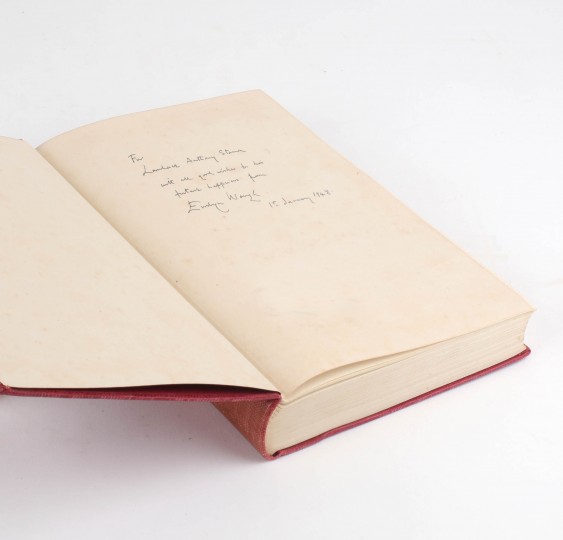 For
Anthony
with all good wishes to his
future happiness from
Evelyn Waugh 15 January 1948